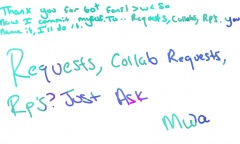 Thank you for 60+ fans! >w< So
Now I commit myself To... Requests, Collabs, Rp's. you
Name it, I'll do it.
Requests, Collab Requests,
Rp's? Just Ask
Mwa